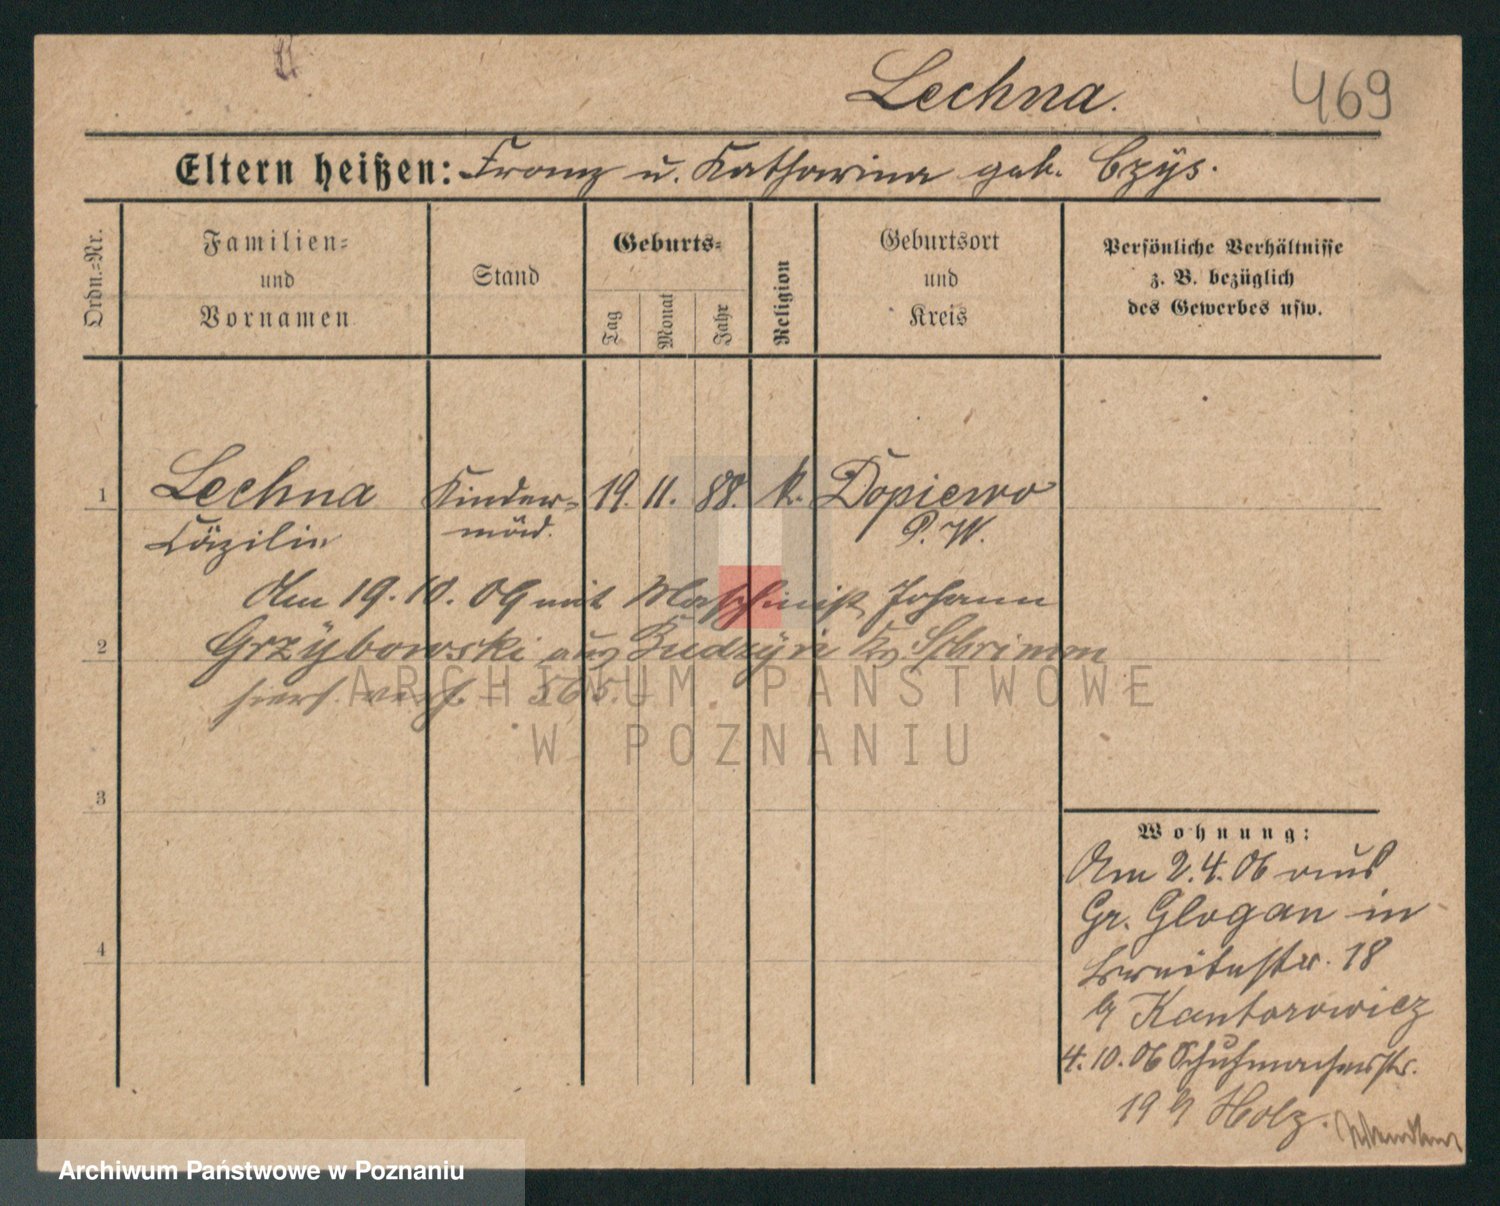 Lechna.
469
Eltern heißen: Franz u. Katharina geb. Czÿs.
Ordn.=Nr.
Familien= und Vornamen
Stand
Geburts=
Tag
Monat
Jahr
Religion
Geburtsort und Kreis
Persönliche Verhältnisse z. B. bezüglich des Gewerbes usw.
1 Lechna Kinder= 19. 11. 88. k. Dopiewo
Cäzilie mäd. P. W.
Am 19. 10. 09 mit Maschinist Johann
2 Grzÿbowski aus Kr. Schrimm
hier verh. 565.
3
4
Wohnung:
Am 2.4.06 aus
Gr. Glogau in
Breitestr. 18
b/ Kantorowicz
4.10.06 Schuhmacherstr.
19 b/ Holz.
ARCHIWUM PAŃSTWOWE
W POZNANIU
Archiwum Państwowe w Poznaniu